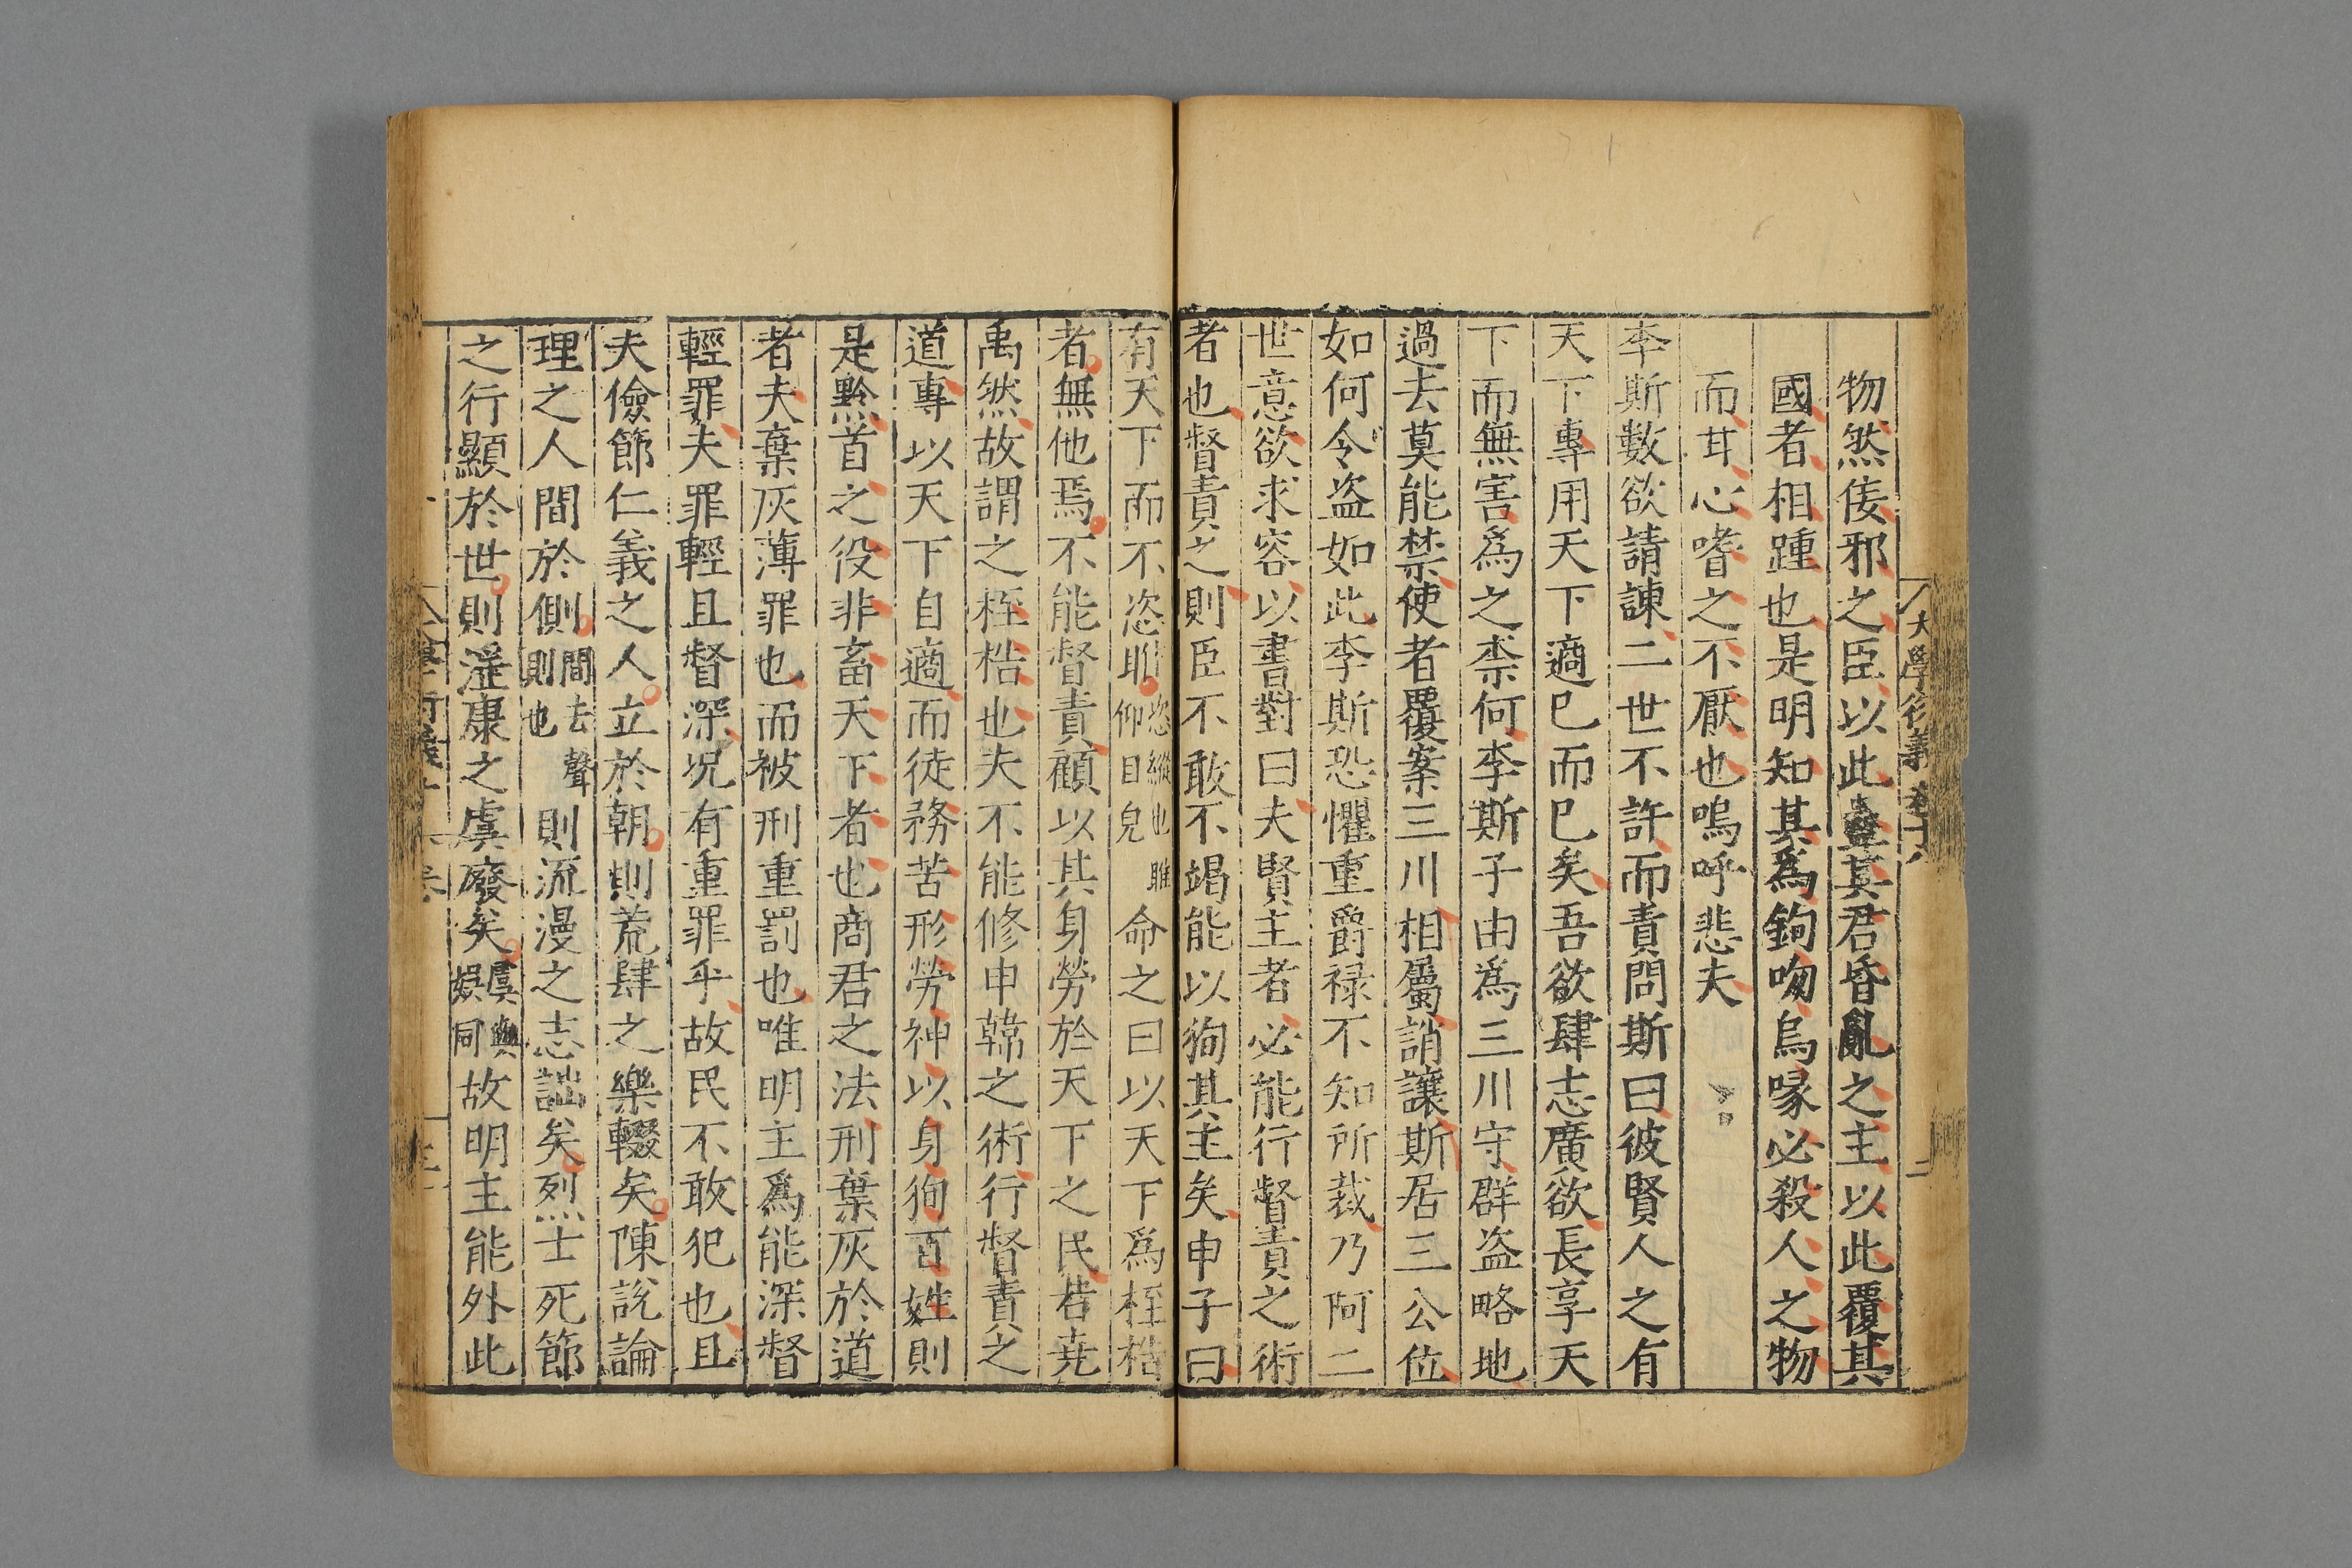 大學衍義 卷十八 二
物然佞邪之臣以此蠱其君昏亂之主以此覆其
國者相踵也是明知其爲鉤吻烏喙必殺人之物
而甘心嗜之不厭也嗚呼悲夫
李斯數欲請諫二世不許而責問斯曰彼賢人之有
天下專用天下適已而已矣吾欲肆志廣欲長享天
下而無害爲之柰何李斯子由爲三川守群盜略地
過去莫能禁使者覆案三川相屬誚讓斯居三公位
如何令盜如此李斯恐懼重爵禄不知所裁乃阿二
世意欲求容以書對曰夫賢主者必能行督責之術
者也督責之則臣不敢不竭能以狥其主矣申子曰
有天下而不恣睢恣縱也睢仰目皃命之曰以天下爲桎梏
者無他焉不能督責顧以其身勞於天下之民若堯
禹然故謂之桎梏也夫不能修申韓之術行督責之
道專以天下自適而徒務苦形勞神以身狥百姓則
是黔首之役非畜天下者也商君之法刑棄灰於道
者夫棄灰薄罪也而被刑重罰也唯明主爲能深督
輕罪夫罪輕且督深况有重罪乎故民不敢犯也且
夫儉節仁義之人立於朝則荒肆之樂輟矣陳説論
理之人間於側間去聲側則也則流漫之志詘矣烈士死節
之行顯於世則滛康之虞廢矣虞與娯同故明主能外此